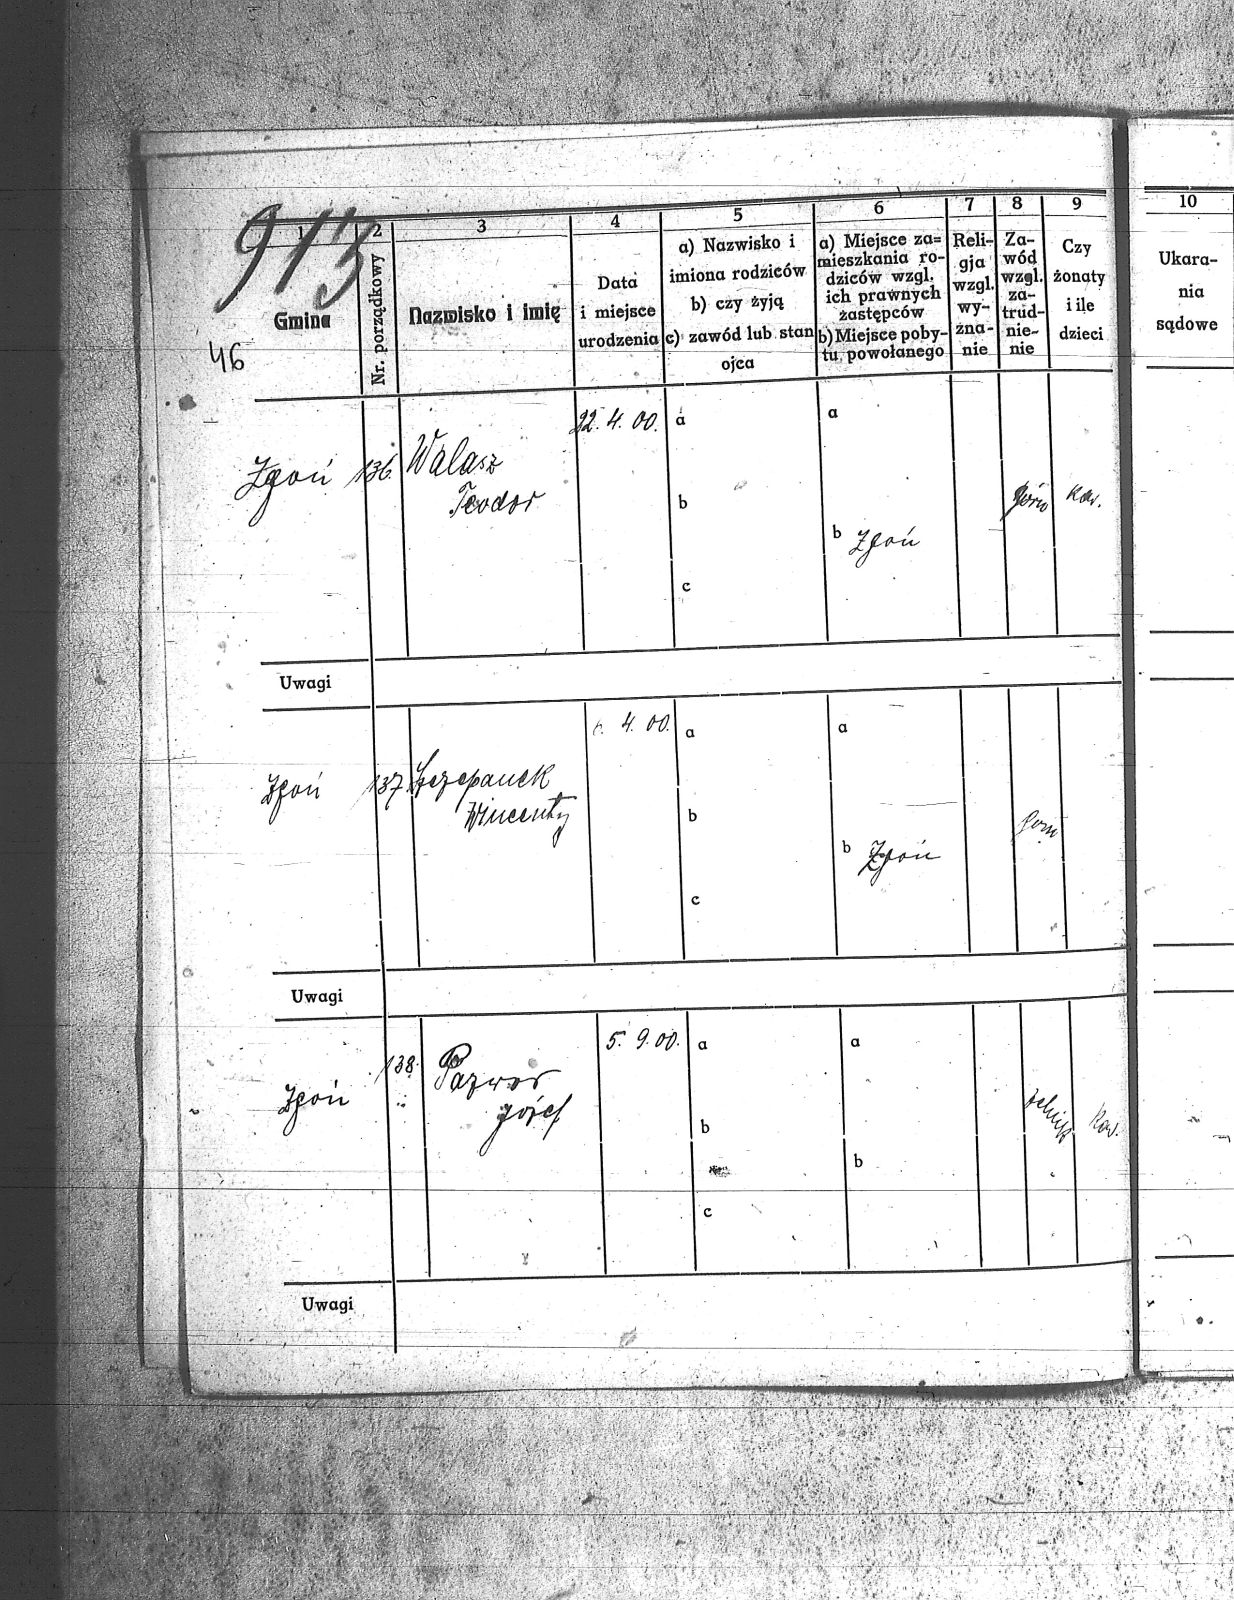 913
46
1
2
3
4
5
6
7
8
9
10
Gmina
Nr. porządkowy
Nazwisko i imię
Data
i miejsce
urodzenia
a) Nazwisko i
imiona rodziców
b) czy żyją
c) zawód lub stan
ojca
a) Miejsce za=
mieszkania ro-
dziców wzgl.
ich prawnych
zastępców
b) Miejsce poby-
tu powołanego
Reli-
gja
wzgl.
wy-
zna-
nie
Za-
wód
wzgl.
za-
trud-
nie-
nie
Czy
żonaty
i ile
dzieci
Ukara-
nia
sądowe
Zgoń
136
Walasz
Teodor
22. 4. 00.
a
b
c
a
b Zgoń
górn
kaw.
Uwagi
Zgoń
137
Szczepanek
Wincenty
4. 00.
a
b
c
a
b Zgoń
górn
Uwagi
Zgoń
138.
Józef
5. 9. 00.
a
b
c
a
b
kaw.
Uwagi